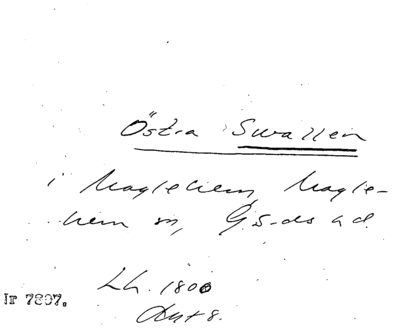 Östra Swallen
i Maglehem, Magle-
hem sn, Gärds hd.
Lh. 1800
Akt 8.
Ir 7897.